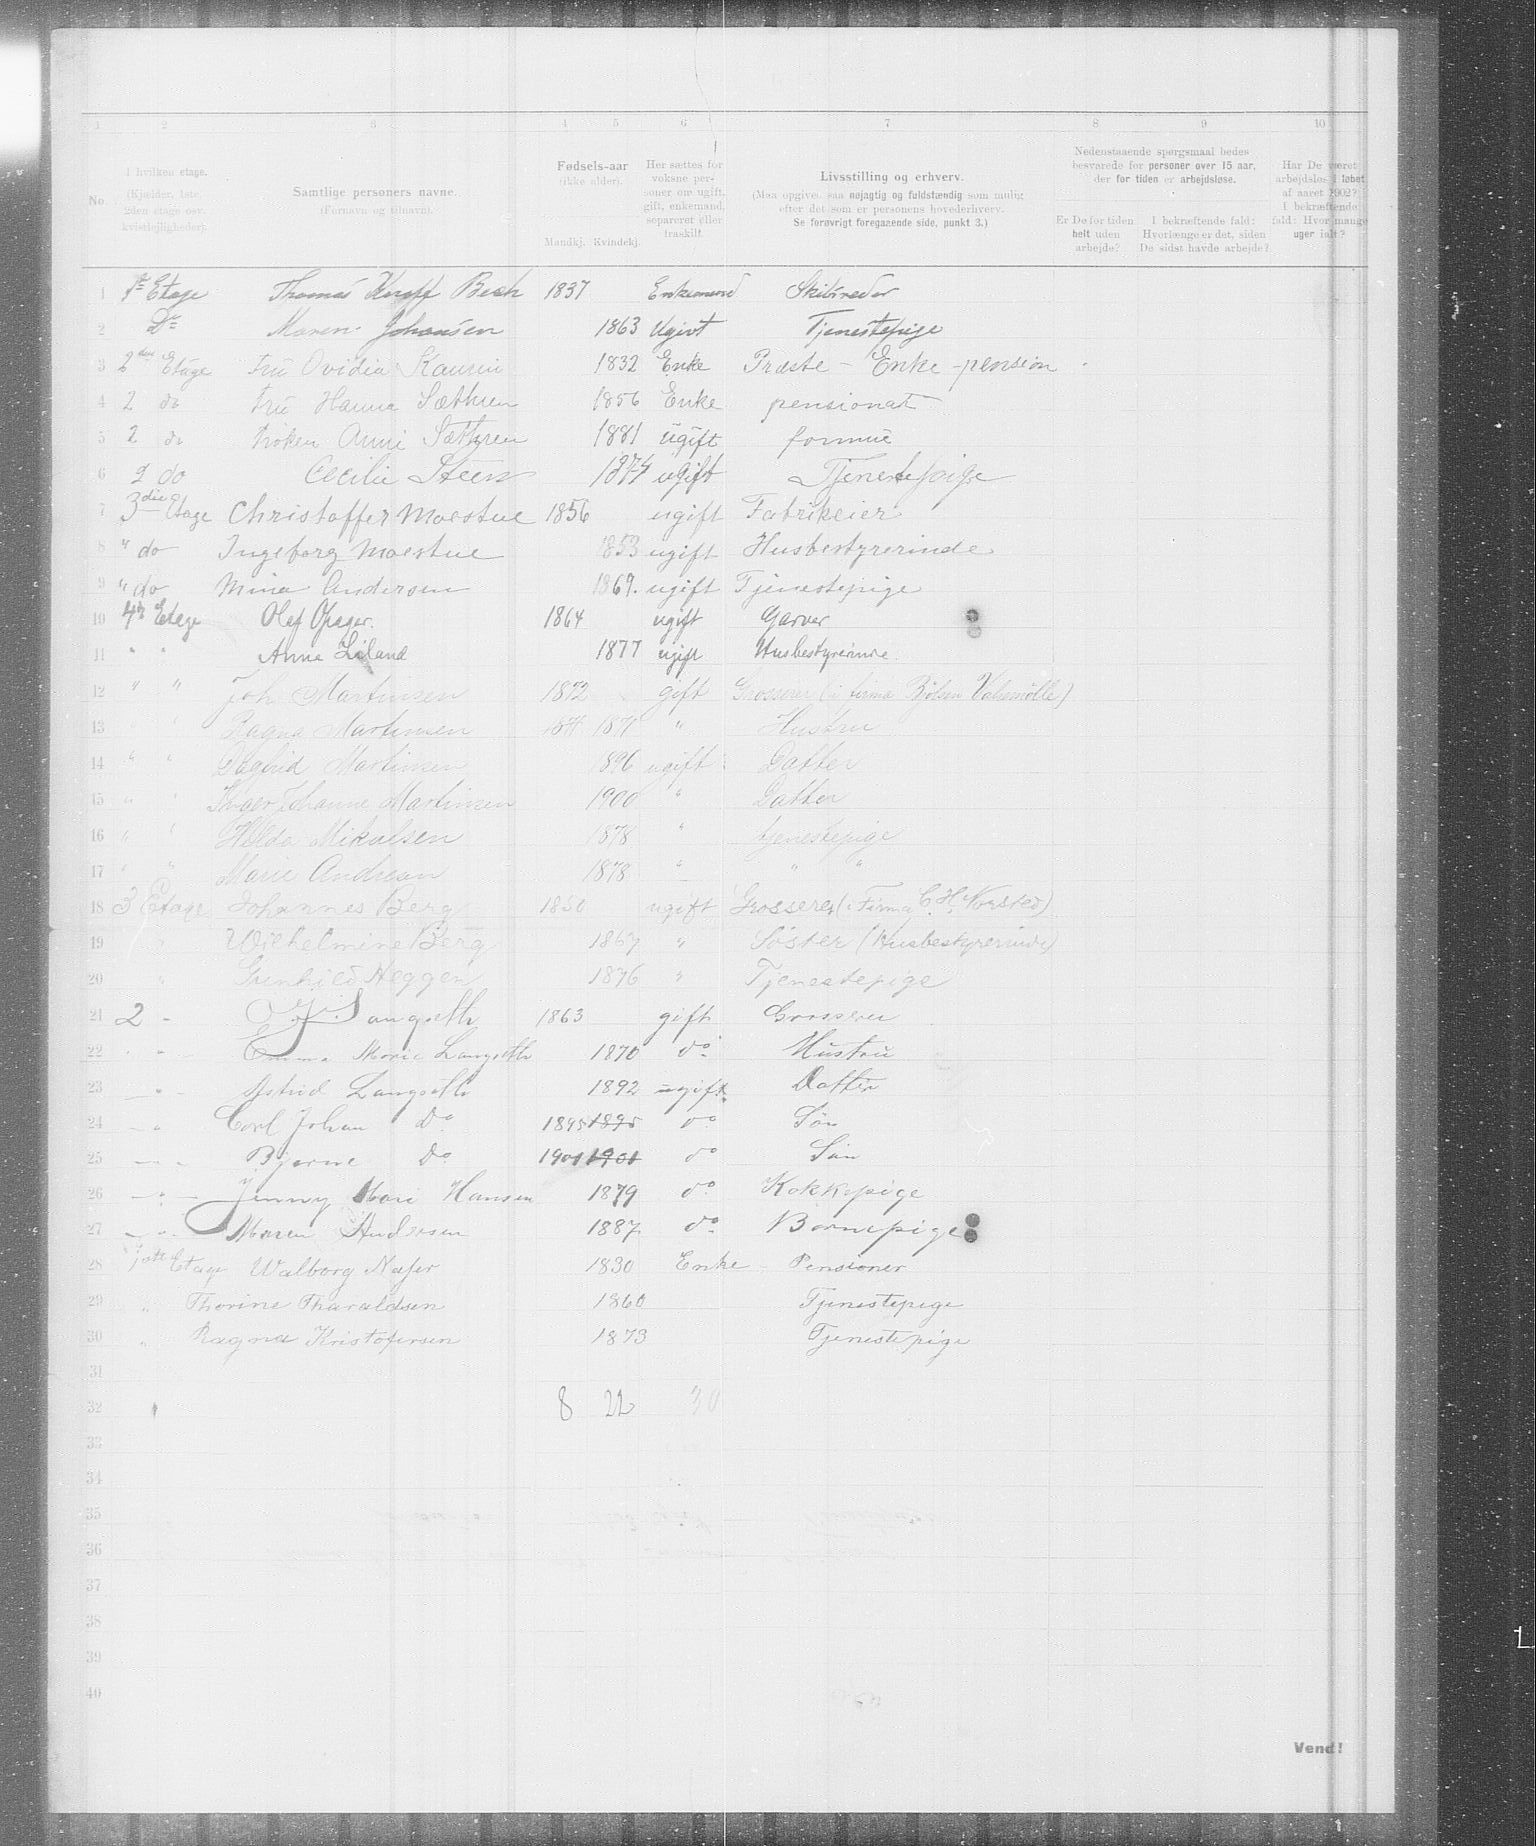 1 2 3 4 5 6 7 8 9 10
No. I hvilken etage. (Kjælder, 1ste, 2den etage osv. kvistlejligheder). Samtlige personers navne. (Fornavn og tilnavn). Fødsels-aar (ikke alder). Mandkj. Kvindekj. Her sættes for voksne personer om ugift, gift, enkemand, separeret eller fraskilt. Livsstilling og erhverv. (Maa opgives saa nøjagtig og fuldstændig som mulig efter det som er personens hovederhverv. Se forøvrigt foregaaende side, punkt 3.) Nedenstaaende spørgsmaal bedes besvarede for personer over 15 aar, der for tiden er arbejdsløse. Er De for tiden helt uden arbejde? I bekræftende fald: Hvorlænge er det, siden De sidst havde arbejde? Har De været arbejdsløs i løbet af aaret 1902? I bekræftende fald: Hvor mange uger ialt?
1 1ste Etage Thomas Knoff Bech 1837 Enkemand Skibsreder
2 Do Maren Johansen 1863 Ugivt Tjenestepige
3 2den Etage Fru Ovidia Kaurin 1832 Enke Præste - Enke - pension
4 2 do Fru Hanna Sæthren 1856 Enke pensionat
5 2 do Frøken Anni Sæthren 1881 ugift formue
6 2 do Cecilie Steen 1874 ugift Tjenestepige
7 3die Etage Christoffer Moestue 1856 ugift Fabrikeier
8 " do Ingeborg Moestue 1853 ugift Husbestyrerinde
9 " do Mina Andersen 1869. ugift Tjenestepige
10 4de Etage Olef Opsager. 1864 ugift Garver
11 " " Anna Liland 1877 ugift Husbestyrerinde.
12 " " Joh Martinsen 1872 gift Grosserer (i firma Bjølsen Valsemølle)
13 " " Ragna Martinsen 1871 " Hustru
14 " " Dagfrid Martinsen 1896 ugift Datter
15 " " Inger Johanne Martinsen 1900 " Datter
16 " " Hilda Mikalsen 1878 " tjenestepige
17 " " Marie Andresen 1878 " " "
18 3 Etage Johannes Berg 1850 ugift Grosserer (i Firma C. H. Norsted)
19 " Wilhelmine Berg 1867 " Søster (Husbestyrerinde)
20 " Gunhild Heggen 1876 " Tjenestepige
21 2 - Langseth 1863 gift Grosserer
22 " " Emma Marie Langseth 1870 do Hustru
23 - " - Astrid Langseth 1892 ugift Datter
24 - " Carl Johan Do 1895 1895 do Søn
25 - " - Bjarne Do 1901 1901 do Søn
26 - " - Jenny Mari Hansen 1879 do Kokkepige
27 - " - Maren Andersen 1887 do Barnepige
28 1ste Etage Walborg Naser 1830 Enke Pensioner
29 " Thorine Tharaldsen 1860 Tjenestepige
30 " Ragna Kristofersen 1873 Tjenestepige
31
32 8 22 30
33
34
35
36
37
38
39
40
Vend!